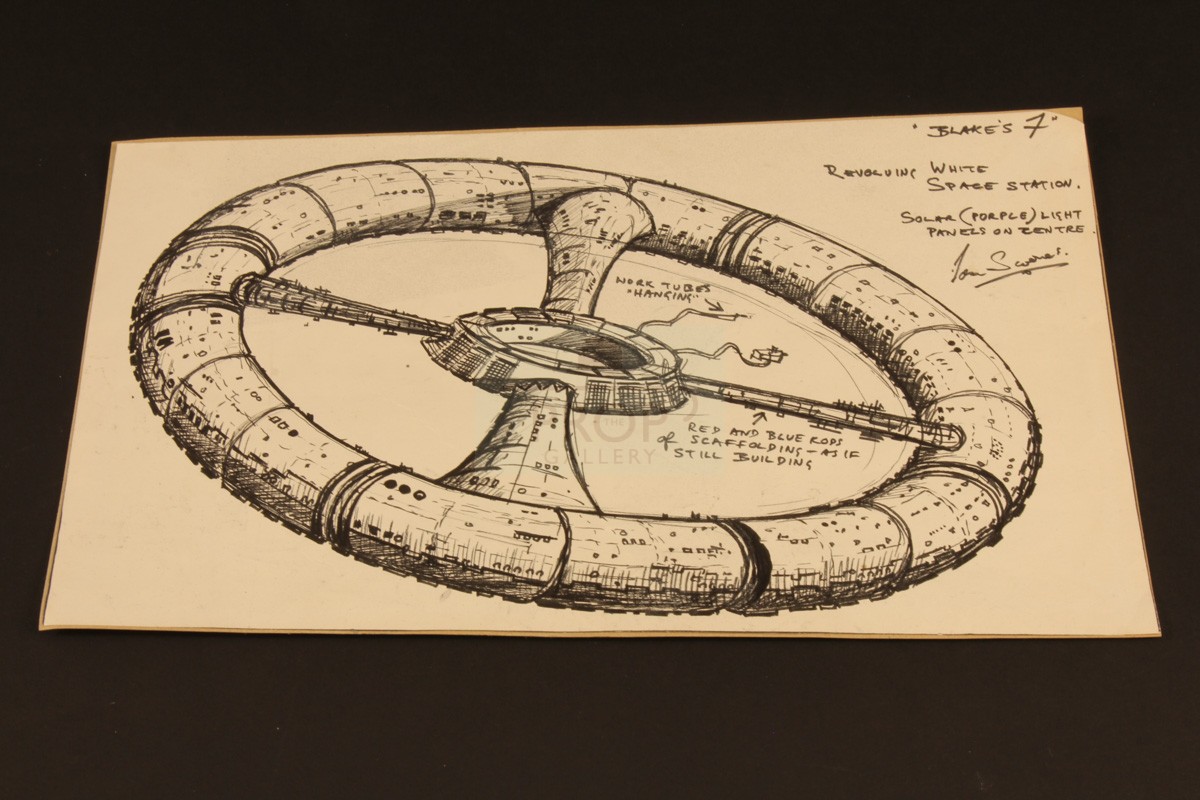 "BLAKE'S 7"
REVOLVING WHITE
SPACE STATION.
SOLAR (PORPLE) LIGHT
PANELS ON CENTRE.
WORK TUBES
"HANGING"
RED AND BLUE RODS
OF SCAFFOLDING - AS IF
STILL BUILDING
THE
PROP
GALLERY